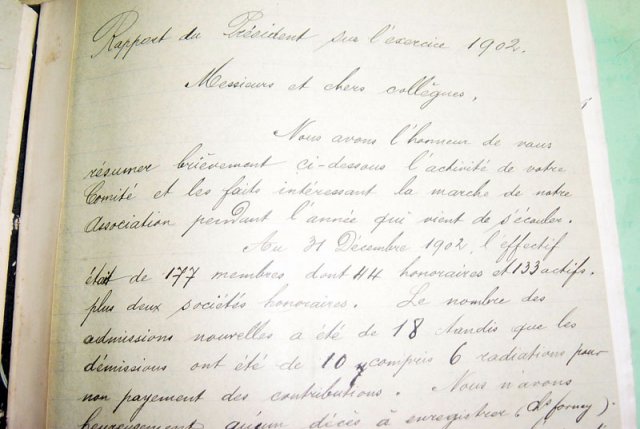 Rapport du Président sur l'exercice 1902.
Messieurs et chers collègues,
Nous avons l'honneur de vous
résumer brièvement ci-dessous l'activité de votre
Comité et les faits intéressant la marche de notre
Association pendant l'année qui vient de s'écouler.
Au 31 Décembre 1902, l'effectif
était de 177 membres, dont 44 honoraires et 133 actifs.
plus deux sociétés honoraires. Le nombre des
admissions nouvelles a été de 18 tandis que les
démissions ont été de 10 y compris 6 radiations pour
non payement des contributions. Nous n'avons
heureusement qu'un décès à enregistrer